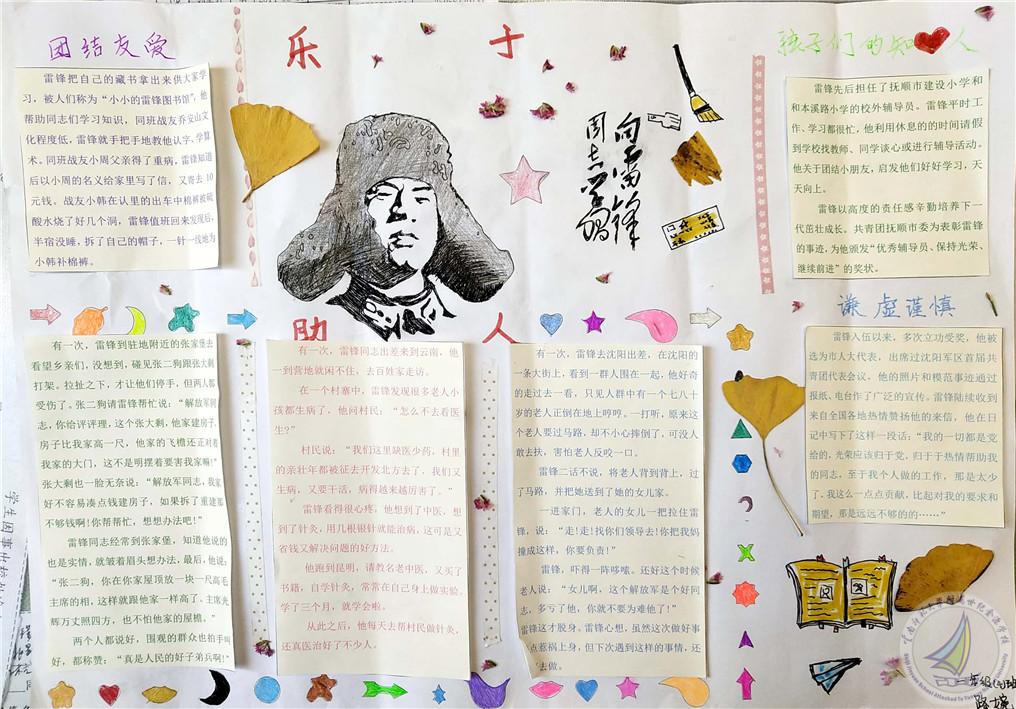 团结友爱
雷锋把自己的藏书拿出来供大家学
习，被人们称为“小小的雷锋图书馆”，他
帮助同志们学习知识，同班战友乔安山文
化程度低，雷锋就手把手地教他认字，学算
术。同班战友小周父亲得了重病，雷锋知道
后以小周的名义给家里写了信，又寄去10
元钱。战友小韩在认里的出车中棉裤被硫
酸水烧了好几个洞，雷锋值班回来发现后，
半宿没睡，拆了自己的帽子，一针一线地为
小韩补棉裤。
乐于
助人
向雷锋
同志学习
孩子们的知人
雷锋先后担任了抚顺市建设小学和
和本溪路小学的校外辅导员。雷锋平时工
作、学习都很忙，他利用休息的的时间请假
到学校找教师、同学谈心或进行辅导活动。
他关于团结小朋友，启发他们好好学习，天
天向上。
雷锋以高度的责任感辛勤培养下一
代茁壮成长。共青团抚顺市委为表彰雷锋
的事迹，为他颁发“优秀辅导员、保持光荣、
继续前进”的奖状。
谦虚谨慎
雷锋人伍以来，多次立功受奖，他被
选为市人大代表，出席过沈阳军区首届共
青团代表会议。他的照片和模范事迹通过
报纸、电台作了广泛的宣传。雷锋陆续收到
来自全国各地热情赞扬他的来信，他在日
记中写下了这样一段话：“我的一切都是党
给的，光荣应该归于党，归于于热情帮助我
的同志，至于我个人做的工作，那是太少
了。我这么一点点贡献，比起对我的要求和
期望，那是远远不够的的……”
有一次，雷锋到驻地附近的张家堡去
看望乡亲们，没想到，碰见张二狗跟张大剩
打架。拉扯之下，才让他们停手，但两人都
受伤了。张二狗请雷锋帮忙说：“解放军同
志，你给评评理，这个张大剩，他家建房子，
房子比我家高一尺，他家的飞檐还正对着
我家的大门，这不是明摆着要害我家嘛!”
张大剩也一脸无奈说：“解放军同志，我家
好不容易凑点钱建房子，如果拆了重建那
不够钱啊!你帮帮忙，想想办法吧!”
雷锋同志经常到张家堡，知道他说的
也是实情，就皱着眉头想办法，最后，他说：
“张二狗，你在你家屋顶放一块一尺高毛
主席的相，这样就跟他家一样高了。主席光
辉万丈照四方，也不怕他家的屋檐。”
两个人都说好，围观的群众也拍手叫
好，都称赞：“真是人民的好子弟兵啊!”
有一次，雷锋同志出差来到云南，他
一到营地就闲不住，去百姓家走访。
在一个村寨中，雷锋发现很多老人小
孩都生病了，他问村民：“怎么不去看医
生?”
村民说：“我们这里缺医少药，村里
的亲壮年都被征去开发北方去了，我们又
生病，又要干活，病得越来越厉害了。”
雷锋看得很心疼，他想到了中医，想
到了针灸，用几根银针就能治病，这可是又
省钱又解决问题的好方法。
他跑到昆明，请教名老中医，又买了
书籍，自学针灸，常常在自己身上做实验。
学了三个月，就学会啦。
从此之后，他每天去帮村民做针灸，
还真医治好了不少人。
有一次，雷锋去沈阳出差，在沈阳的
一条大街上，看到一群人围在一起，他好奇
的走过去一看，只见人群中有一个七八十
岁的老人正倒在地上哼哼。一打听，原来这
个老人要过马路，却不小心摔倒了，可没人
敢去扶，害怕老人反咬一口。
雷锋二话不说，将老人背到背上，过
了马路，并把她送到了她的女儿家。
一进家门，老人的女儿一把拉住雷
锋，说：“走!走!找你们领导去!你把我妈
撞成这样，你要负责!”
雷锋，吓得一阵哆嗦。还好这个时候
老人说：“女儿啊，这个解放军是个好同
志，多亏了他，你就不要为难他了!”
雷锋这才脱身。雷锋心想，虽然这次做好事
点惹祸上身，但下次遇到这样的事情，还
去做。